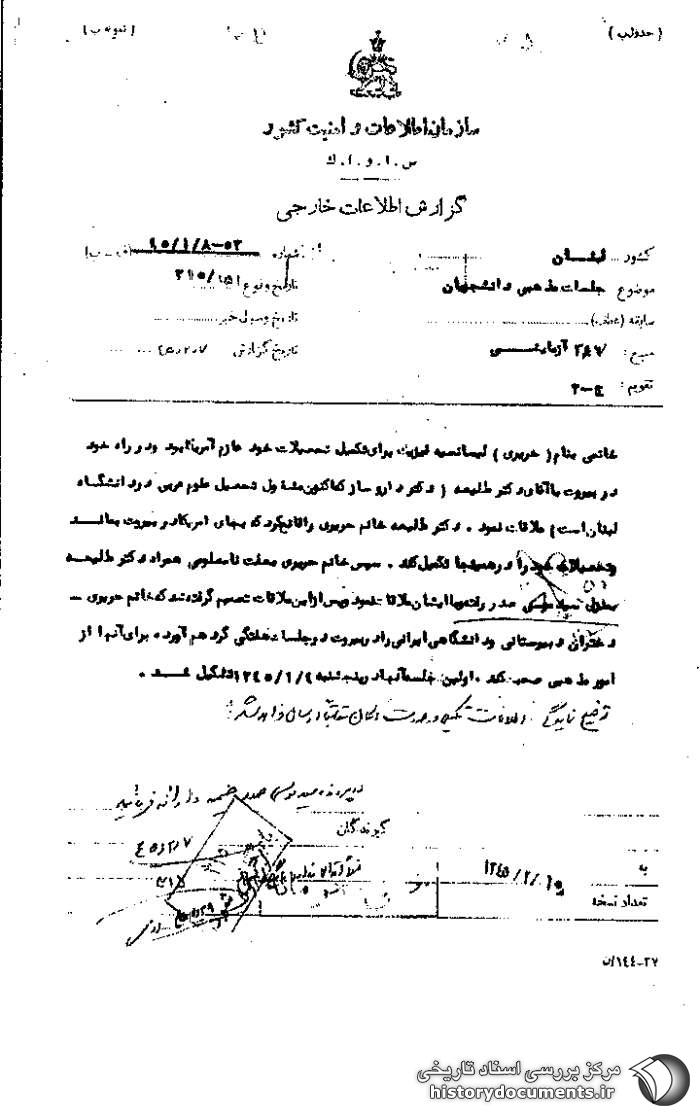 (جدولب)
(نمونه ب)
سازمان اطلاعات و امنیت کشور
س . ا . و . ا . ك
گزارش اطلاعات خارجی
کشور ... لبنان
شماره
موضوع جلسات مذهبی دانشجویان
تاریخ وقوع
سابقه (عطف)
تاریخ وصول خبر
منبع: ۲۸۷ آزمایشی
تاریخ گزارش ۴۵/۲/۷
تقویم: ج-۲
خانمی بنام ( حریری ) لیسانسیه فیزیک برای تکمیل تحصیلات خود عازم آمریکا بود و در راه خود
در بیروت با آقای دکتر طلیعه ( دکتر داروساز که اکنون مشغول تحصیل علوم عربی در دانشگاه
لبنان است) ملاقات نمود . دکتر طلیعه خانم حریری را قانع کرد که بجای امریکا در بیروت بماند
و تحصیلات خود را در همینجا تکمیل کند . سپس خانم حریری بعلت نامعلومی همراه دکتر طلیعه
بمنزل سید موسی صدر رفته و با ایشان ملاقات نمود و پس از این ملاقات تصمیم گرفته شد که خانم حریری -
دختران دبیرستانی و دانشگاهی ایرانی را در بیروت در جلسات هفتگی گرد هم آورده برای آنها از
امور مذهبی صحبت کند . اولین جلسه آنها در پنجشنبه ۱۳۴۵/۱/۴ تشکیل شد .
توضیح نمایندگی: اطلاعات تکمیلی در صورت امکان متعاقباً ارسال خواهد شد:
در پرونده سید موسی صدر ضمیمه دارائه فرمائید
گیرندگان
۴۵/۲/۷
به
تعداد نسخه
۲۷-۱۴۴/ن
مرکز بررسی اسناد تاریخی
historydocuments.ir